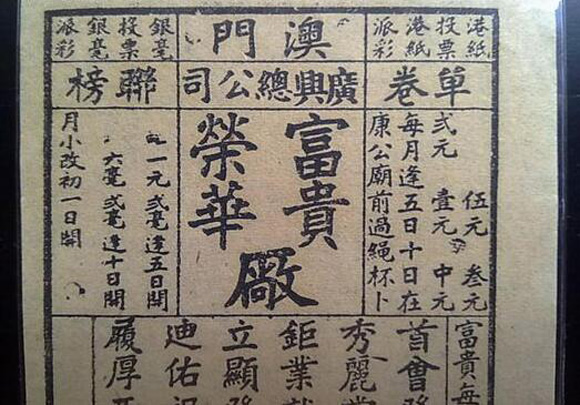 港紙
投票
港紙
派彩
澳門
銀毫
投票
銀毫
派彩
單卷
廣興總公司
聯榜
伍元 叁元
弍元 壹元 中元
每月逢五日十日在
康公廟前過繩杯卜
富貴
榮華
廠
一元弍毫逢五日開
六毫弍毫逢十日開
月小改初一日開
富貴每
首會
秀麗
鉅業
立顯
迪佑
履厚